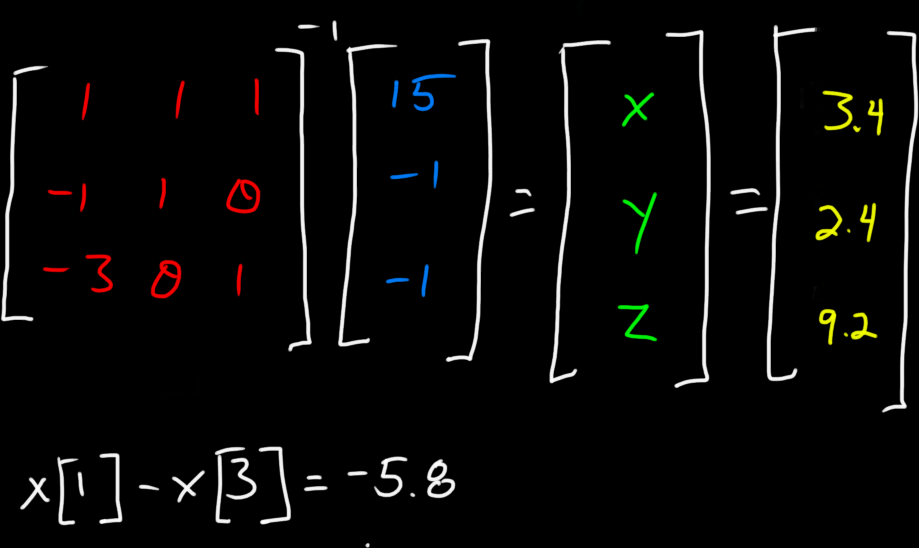 [1 1 1; -1 1 0; -3 0 1]⁻¹ [15; -1; -1] = [x; y; z] = [3.4; 2.4; 9.2]
x[1] - x[3] = -5.8